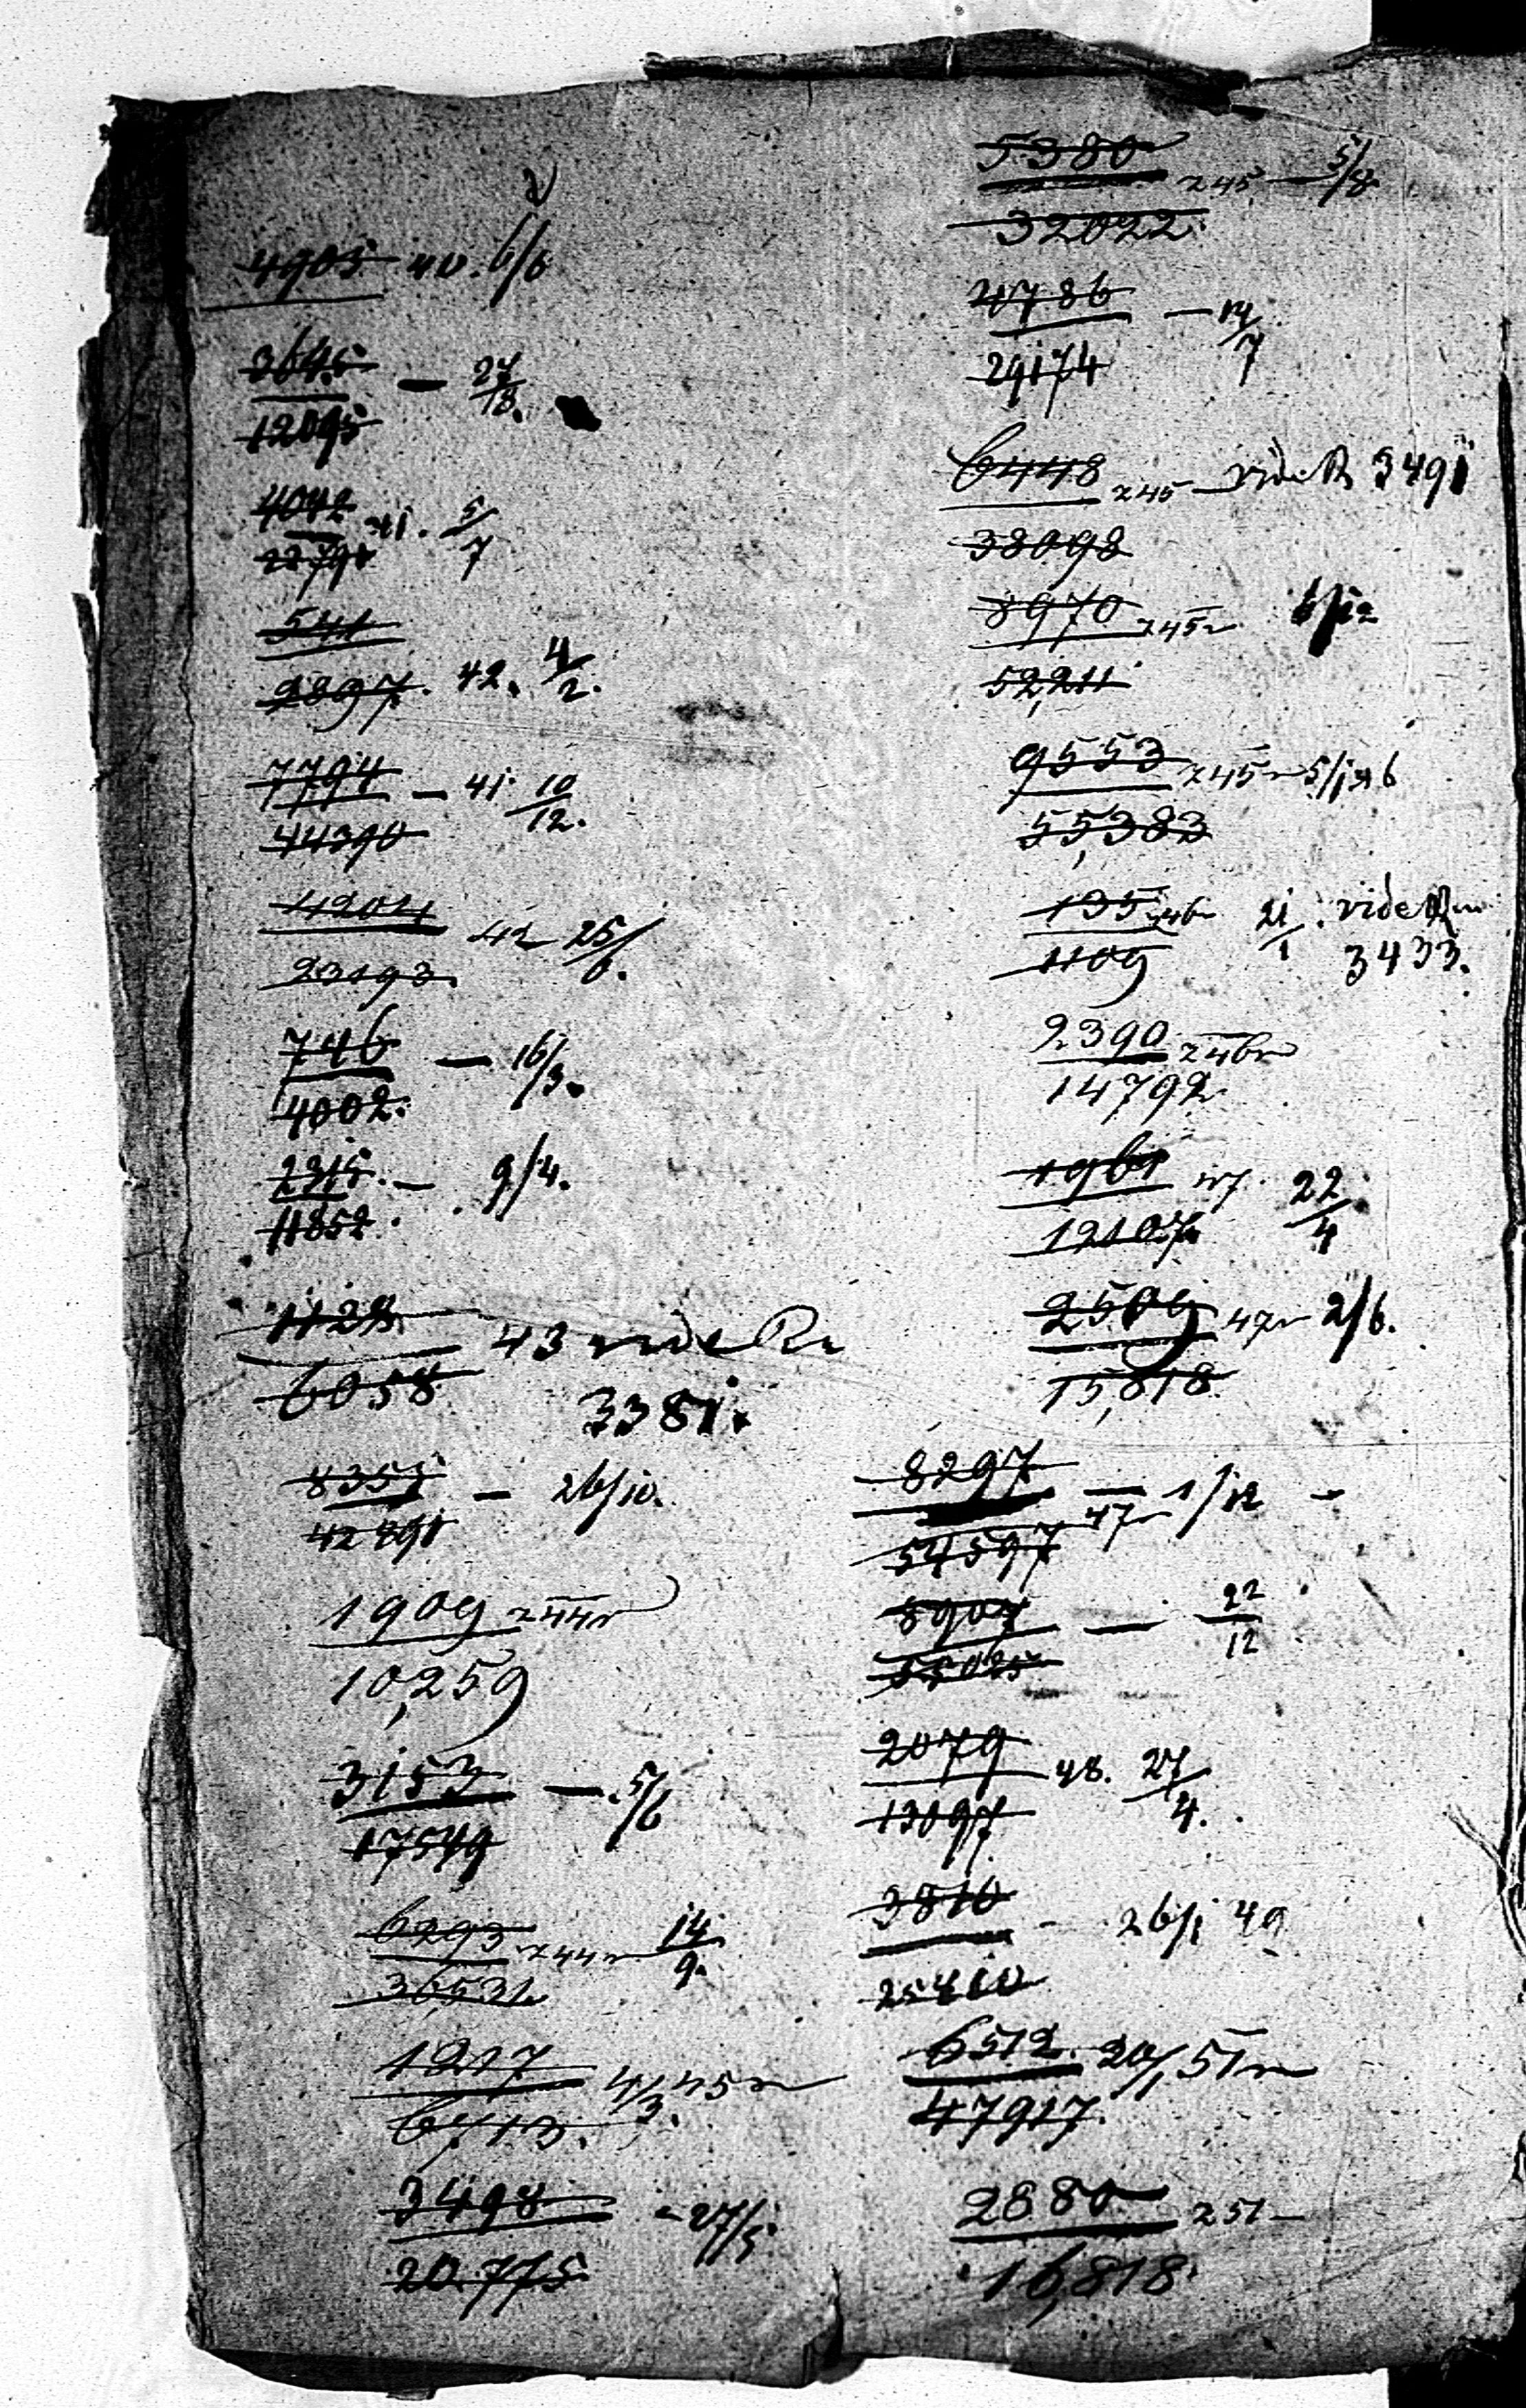 4903 40. 6/6
3645
— 27/8.
12095
4042
41. 5/7
22791
541
9897. 42. 4/2.
7794
— 41 10/12.
44390
4204
42 25/6.
23193.
746 — 16/3.
4002.
2315. — 9/4.
11852.
1128
43 vide R
6058
3381.
8351 — 26/10.
42891
1909 z 44r
10,259
3153 — 5/6
17549
6293 z 44r 14/9.
36531
1217
4/3. 45r
6713.
3498 - 27/5
20.775
5380
z 45 — 5/8
32022
4786 — 14/7
29174
6448 z 45 — vide R 3491
38098
8970 z 45r 6/12
52,211
9553 z 45r 5/1 46
55,383
135 46r 21/1 . vide R
1109 3433.
2390 z 46r
14792
1961 47. 22/4
12107
2509 47r 2/6.
15,818
8297
— 47r 1/12 -
54597
8907 — 22/12
2079
48. 27/4.
13097.
3810
- 26/1 49
25410
6512. 20/1 51r
47917.
2880 z 51 -
16,818